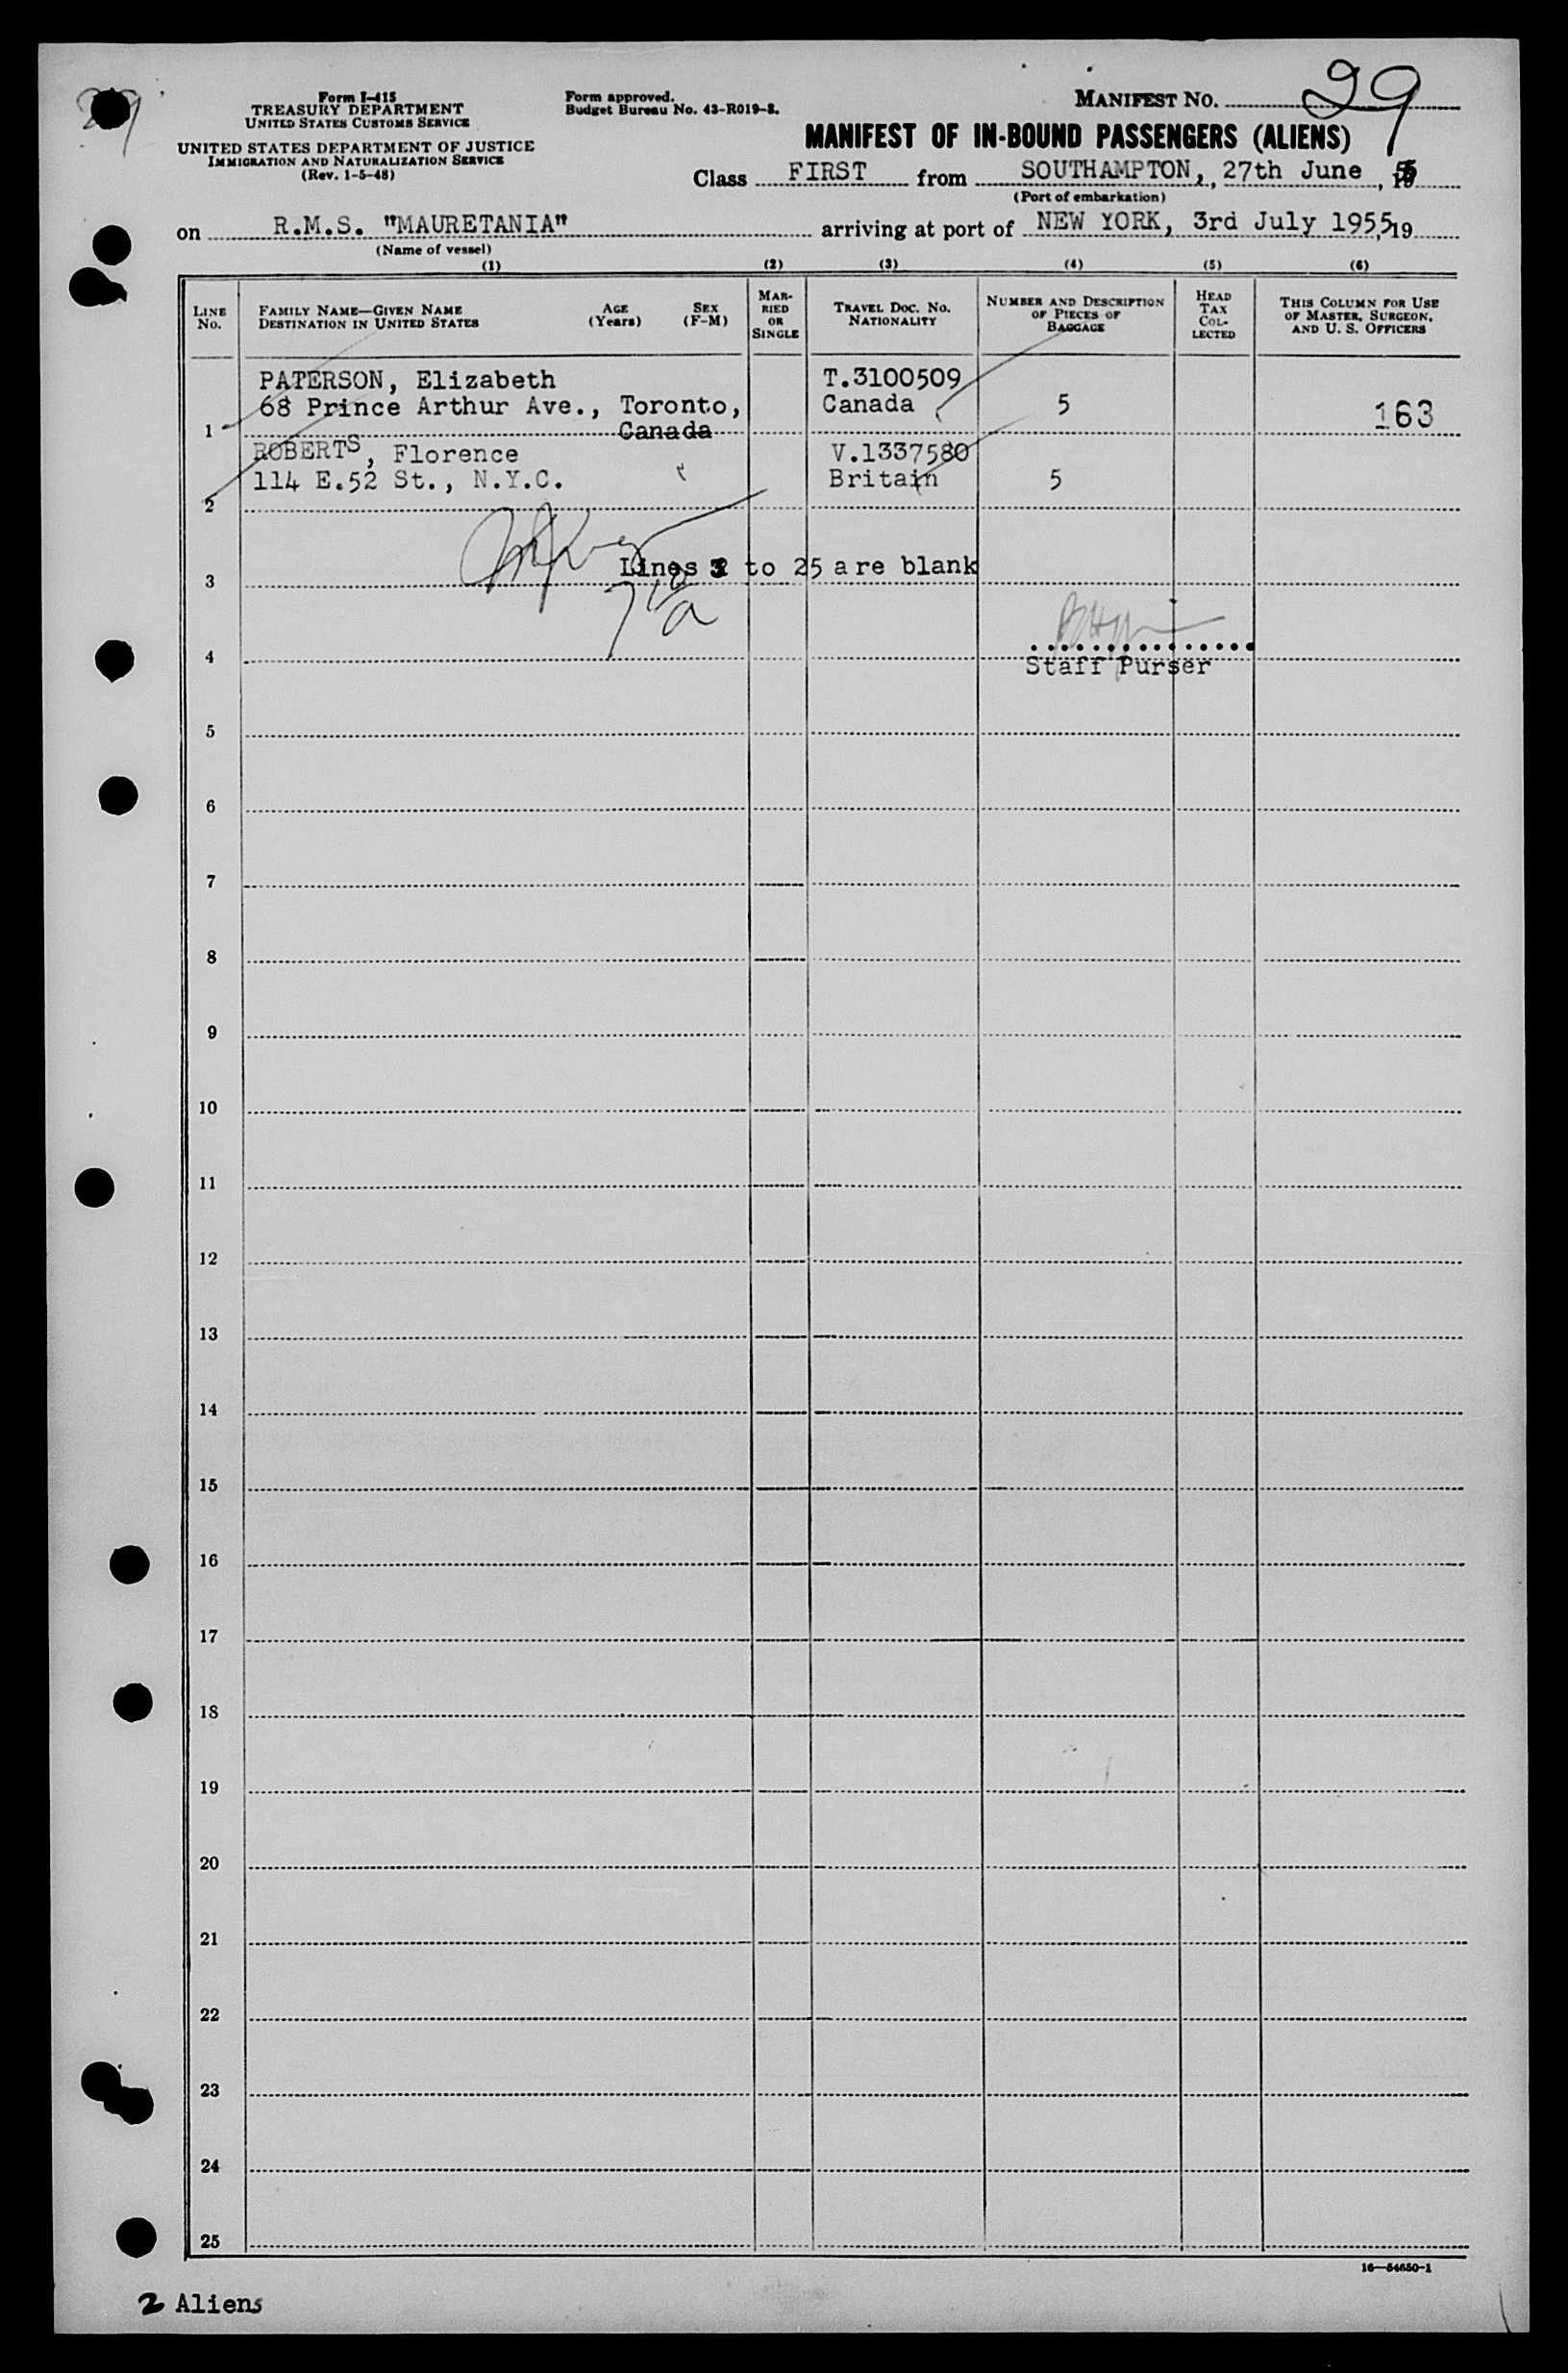 29
Form I-415
TREASURY DEPARTMENT
UNITED STATES CUSTOMS SERVICE
UNITED STATES DEPARTMENT OF JUSTICE
IMMIGRATION AND NATURALIZATION SERVICE
(Rev. 1-5-48)
Form approved.
Budget Bureau No. 43-R019-3.
MANIFEST NO. 29
MANIFEST OF IN-BOUND PASSENGERS (ALIENS)
Class FIRST from SOUTHAMPTON, 27th June, 1955
(Port of embarkation)
on R.M.S. "MAURETANIA" arriving at port of NEW YORK, 3rd July 1955, 19
(Name of vessel)
(1) (2) (3) (4) (5) (6)
LINE NO. FAMILY NAME—GIVEN NAME DESTINATION IN UNITED STATES AGE (Years) SEX (F-M) MARRIED OR SINGLE TRAVEL DOC. NO. NATIONALITY NUMBER AND DESCRIPTION OF PIECES OF BAGGAGE HEAD TAX COLLECTED THIS COLUMN FOR USE OF MASTER, SURGEON, AND U. S. OFFICERS
PATERSON, Elizabeth T.3100509
68 Prince Arthur Ave., Toronto, Canada 5 163
1 Canada
ROBERTS, Florence V.1337580
114 E.52 St., N.Y.C. Britain 5
2
Lines 3 to 25 are blank
3
4
Staff Purser
5
6
7
8
9
10
11
12
13
14
15
16
17
18
19
20
21
22
23
24
25
16—54650-1
2 Aliens